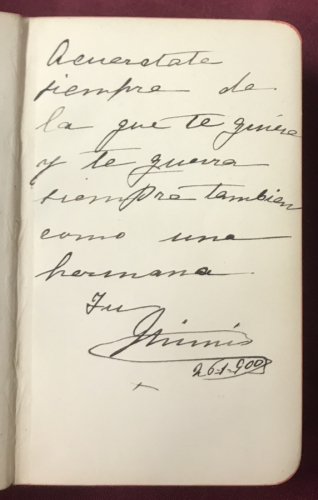 Acuerdate
siempre de
la que te quiere
y te querra
siempre tambien
como una
hermana.
Tu
Mimis